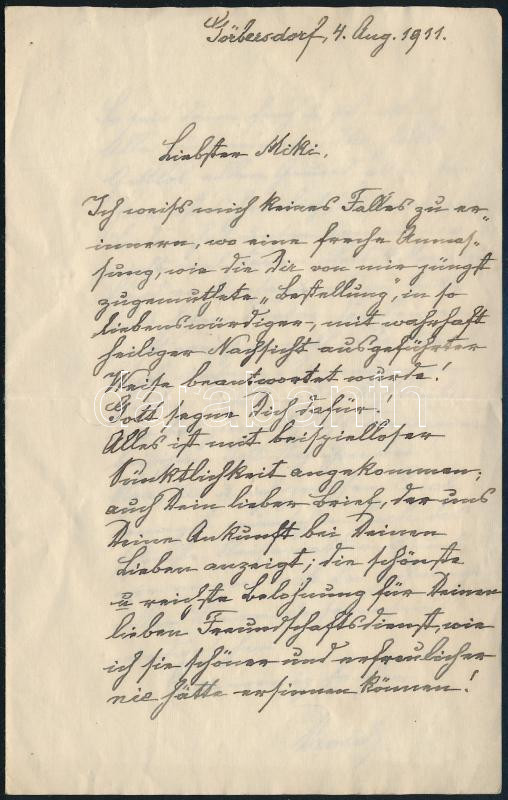 Görbersdorf, 4. Aug. 1911.
Liebster Miki,
Ich weiss mich keines Falles zu er-
innern, wo eine freche Anmas-
sung, wie die Dir von mir jüngst
zugemuthete „Bestellung", in so
liebenswürdiger, mit wahrhaft
heiliger Nachsicht ausgeführter
Weise beantwortet wurde!
Gott segne Dich dafür!
Alles ist mit beispielloser
Pünktlichkeit angekommen;
auch Dein lieber Brief, der uns
Deine Ankunft bei Deinen
Lieben anzeigt; die schönste
u reichste Belohnung für Deinen
lieben Freundschaftsdienst, wie
ich sie schöner und erfreulicher
nie hätte ersinnen können!
darabanth